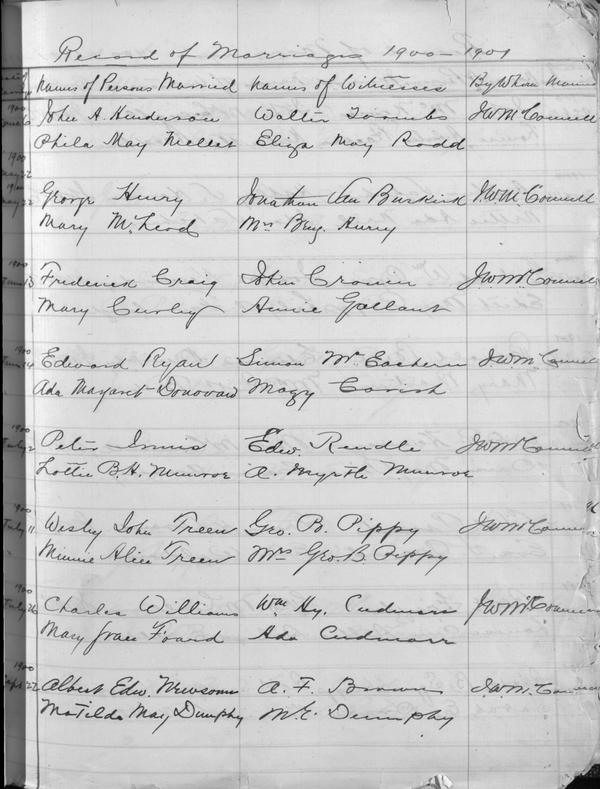 Record of Marriages 1900-1901
Names of Persons Married Names of Witnesses By Whom
1900 John A. Henderson Walter Toombs JWMcConnell
Phila May Mellet Eliza May Rodd
1900
May 22
1900
May 22 George Henry Jonathan Van Buskirk J.W.McConnell
Mary McLeod Mrs Benj. Henry
1900
June 13 Frederick Craig John Cronin JWMcConnell
Mary Curley Annie Gallant
1900
June 14 Edward Ryan Simon McEachern JWMcConnell
Ada Margaret Donovan Magy Corish
1900
July 2 Peter Innis Edw. Rendle JWMcConnell
Lottie B.H. Munroe A. Myrtle Munroe
1900
July 11 Wesley John Treen Geo. B. Pippy JWMcConnell
Minnie Alice Treen Mrs Geo. B. Pippy
1900
July 26 Charles Williams Wm Hy. Cudmore JWMcConnell
Mary Grace Foard Ada Cudmore
1900
Sept 22 Albert Edw. Newsome A. F. Brown J.W.McConnell
Matilda May Dumphy M.E. Dumphy